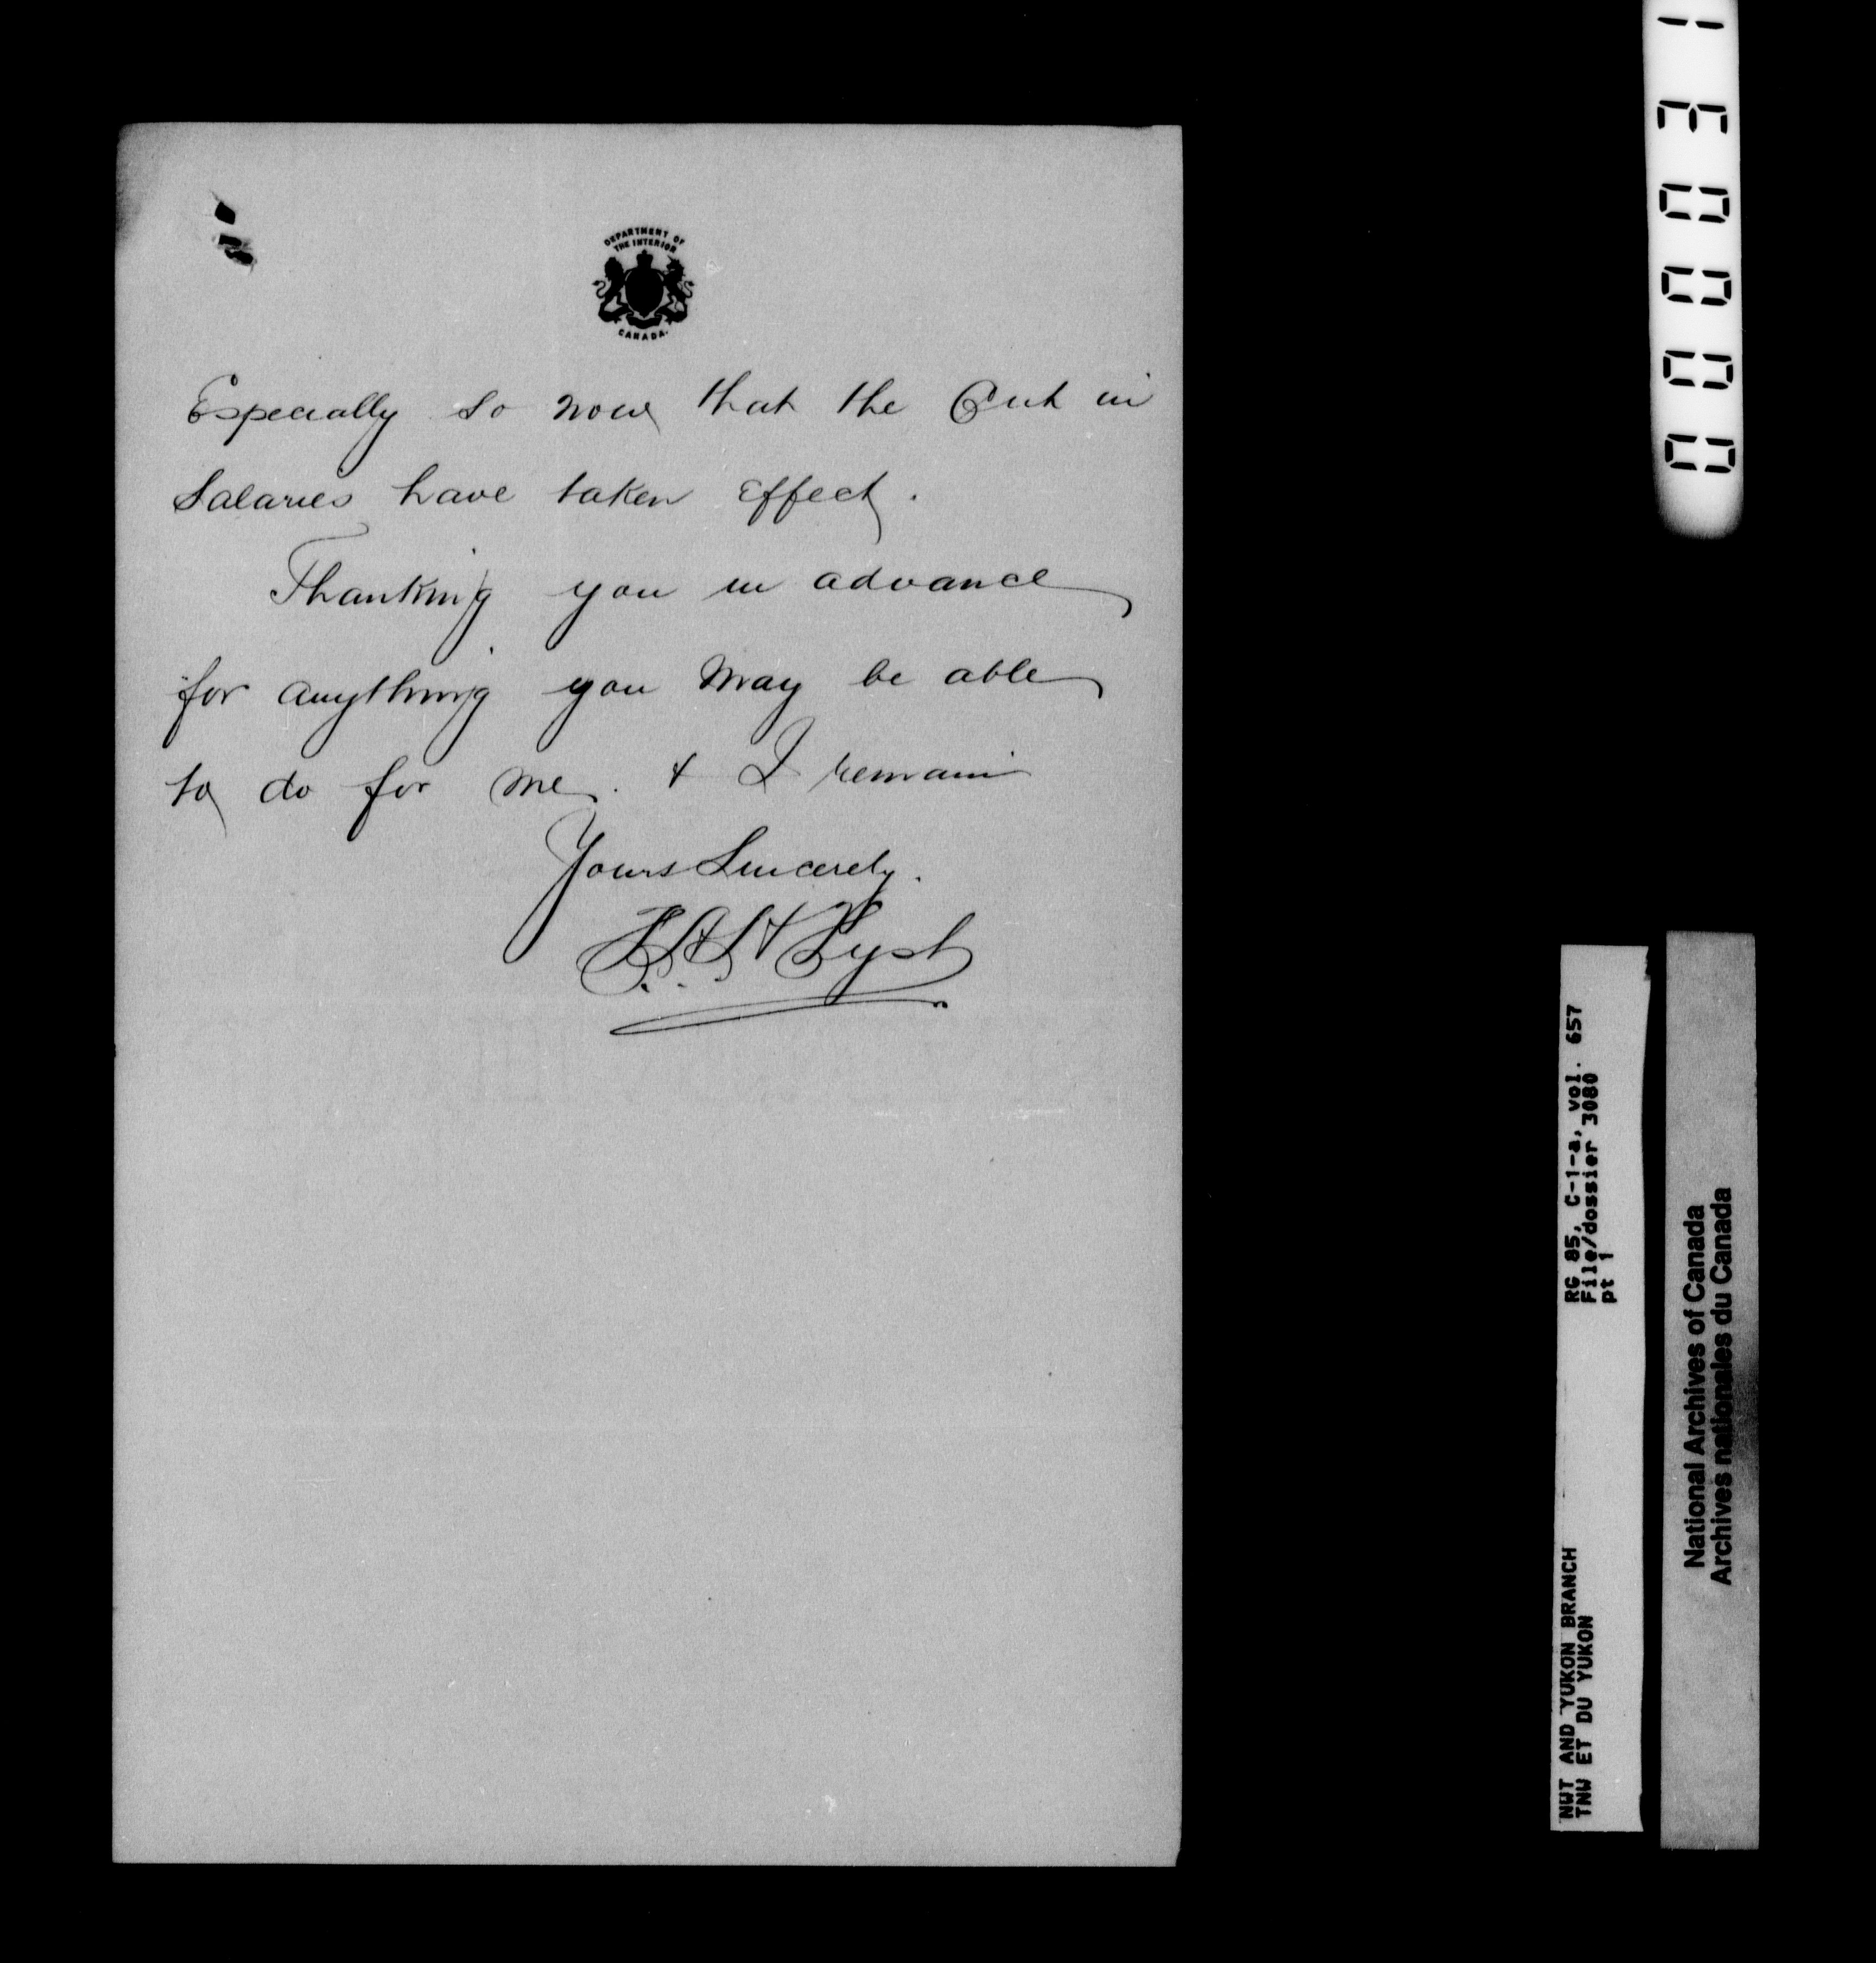 DEPARTMENT OF
THE INTERIOR
CANADA.
Especially so now that the Cut in
Salaries have taken Effect.
Thanking you in advance
for anything you may be able
to do for me. & I remain
Yours Sincerely.
RG 85, C-1-a, vol. 657
File/dossier 3080
pt 1
NWT AND YUKON BRANCH
TNW ET DU YUKON
National Archives of Canada
Archives nationales du Canada